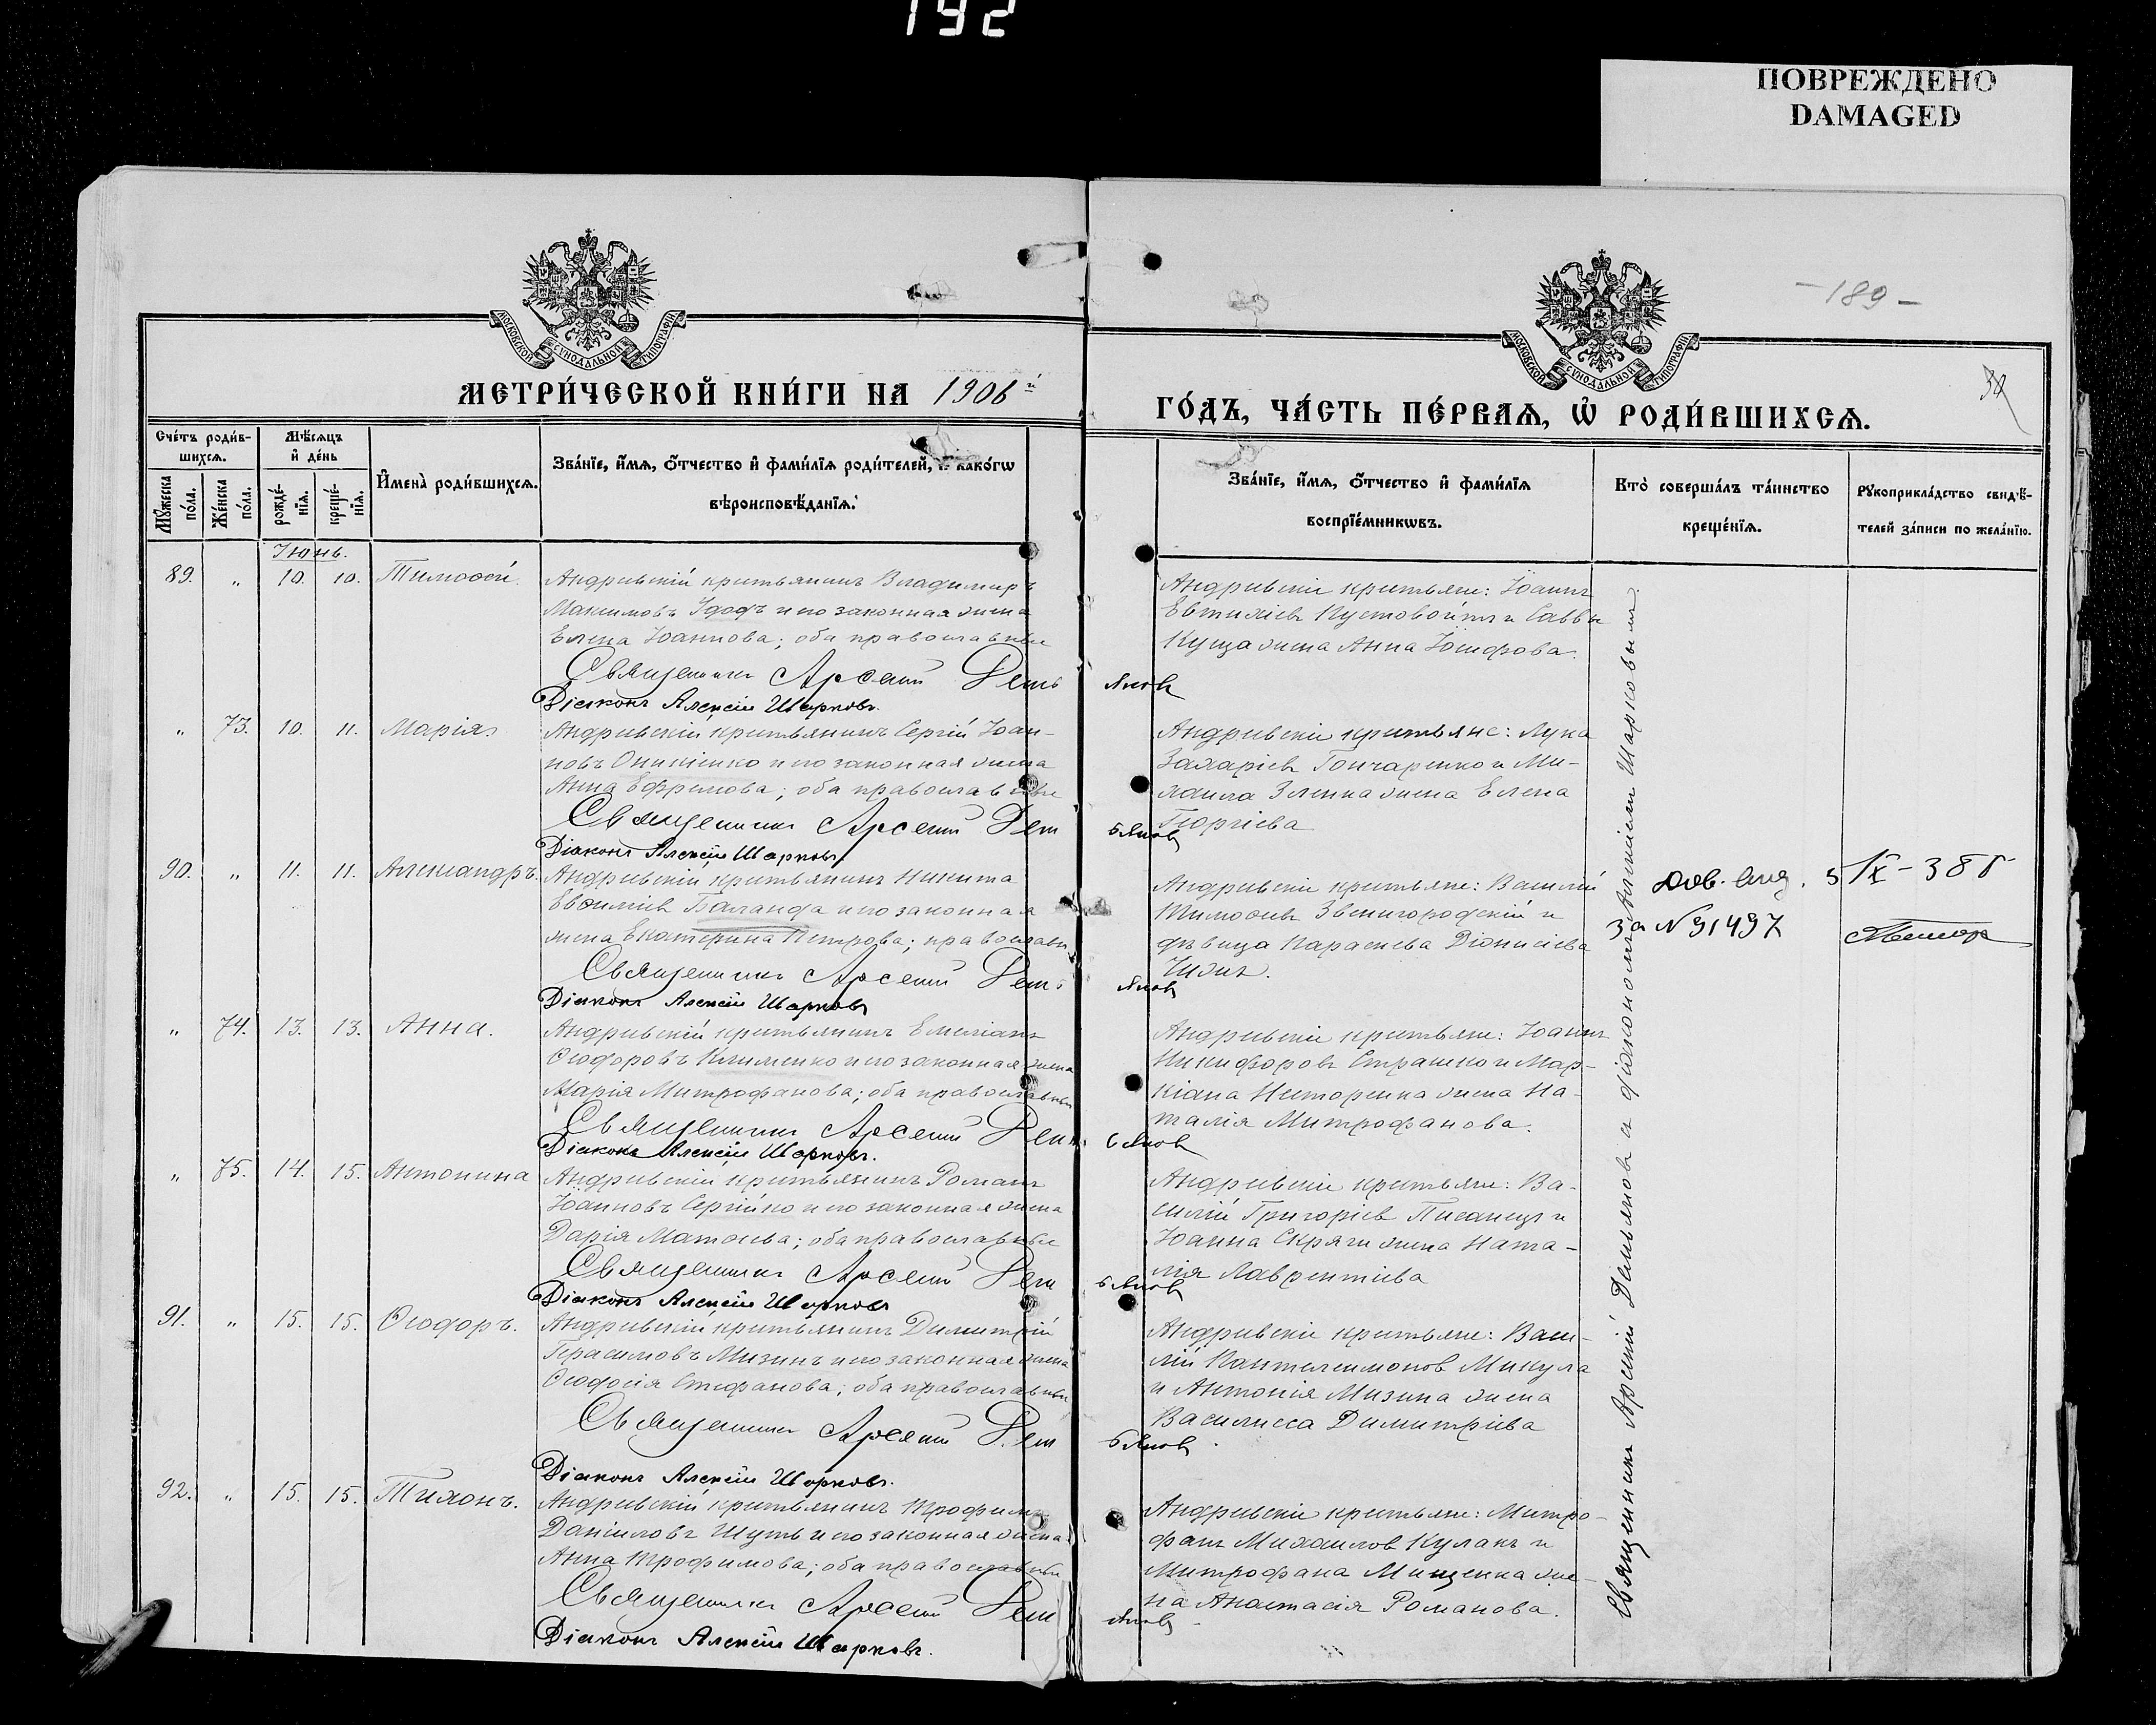 192
ПОВРЕЖДЕНО
DAMAGED
- 189 -
МОСКОВСКОЙ СѴНОДАЛЬНОЙ ТИПОГРАФІИ
МОСКОВСКОЙ СѴНОДАЛЬНОЙ ТИПОГРАФІИ
МЕТРИ́ЧЕСКОЙ КНИ́ГИ НА 1906й
ГО́ДЪ, ЧА́СТЬ ПЕ́РВАѦ, Ѡ҆ РОДИ́ВШИХСѦ.
Сче́тъ роди́в-
шихсѧ.
Мѣ́сѧцъ
и҆ де́нь
Мꙋ́жеска по́ла.
Же́нска по́ла.
рожде́-нїѧ.
креще́-нїѧ.
И҆мена̀ роди́вшихсѧ.
Зва́нїе, и҆́мѧ, ѻ҆́тчество и҆ фами́лїѧ роди́телей, и҆ како́гѡ
вѣроисповѣ́данїѧ.
Зва́нїе, и҆́мѧ, ѻ҆́тчество и҆ фами́лїѧ
воспрїе́мникѡвъ.
Кто̀ соверша́лъ та́инство
креще́нїѧ.
Рꙋкоприкла́дство свидѣ́-
телей за́писи по жела́нїю.
Іюнь.
89. " 10. 10. Тимоѳей.
Андреевскій крестьянинъ Владимиръ
Максимовъ Удодъ и его законная жена
Елена Іоаннова; оба православные
Священникъ Арсеній Демьяновъ
Діаконъ Алексій Шарковъ.
Андреевскіе крестьяне: Іоаннъ
Евтихіевъ Пустовойтъ и Саввы
Куща жена Анна Іосифова.
" 73. 10. 11. Марія
Андреевскій крестьянинъ Сергій Іоан-
новъ Онищенко и его законная жена
Анна Ефремова; оба православные
Священникъ Арсеній Демьяновъ
Діаконъ Алексій Шарковъ
Андреевскіе крестьяне: Лука
Захаріевъ Гончаренко и Ми-
хаила Зленка жена Елена
Георгіева
90. " 11. 11. Александръ.
Андреевскій крестьянинъ Никита
Евѳиміевъ Баланда и его законная
жена Екатерина Петрова; православн
Священникъ Арсеній Демьяновъ
Діаконъ Алексій Шарковъ
Андреевскіе крестьяне: Василій
Тимоѳеевъ Звенигородскій и
дѣвица Параскева Діонисіева
Чижъ.
за № 31497
" 74. 13. 13. Анна.
Андреевскій крестьянинъ Емеліанъ
Ѳеодоровъ Клименко и его законная жена
Марія Митрофанова; оба православные
Священникъ Арсеній Демьяновъ
Діаконъ Алексій Шарковъ.
Андреевскіе крестьяне: Іоаннъ
Никифоровъ Страшко и Мар-
кіана Несторенка жена На-
талія Митрофанова.
" 75. 14. 15. Антонина
Андреевскій крестьянинъ Романъ
Іоанновъ Сергійко и его законная жена
Дарія Матѳіева; оба православные
Священникъ Арсеній Демьяновъ
Діаконъ Алексій Шарковъ
Андреевскіе крестьяне: Ва-
силій Григоріевъ Писанецъ и
Іоанна Скряги жена Ната-
лія Лаврентіева
91. " 15. 15. Ѳеодоръ.
Андреевскій крестьянинъ Димитрій
Герасимовъ Мизинъ и его законная жена
Ѳеодосія Стефанова; оба православные
Священникъ Арсеній Демьяновъ
Діаконъ Алексій Шарковъ.
Андреевскіе крестьяне: Васи-
лій Пантелеимоновъ Микула
и Антонія Мизина жена
Василисса Димитріева
92. " 15. 15. Тихонъ.
Андреевскій крестьянинъ Трофимъ
Даніиловъ Шуть и его законная жена
Анна Трофимова; оба православные
Священникъ Арсеній Демьяновъ
Діаконъ Алексій Шарковъ.
Андреевскіе крестьяне: Митро-
фанъ Михаиловъ Кулакъ и
Митрофана Мищенка же-
на Анастасія Романова.
Священникъ Арсеній Демьяновъ а діакономъ Алексіемъ Шарковымъ.